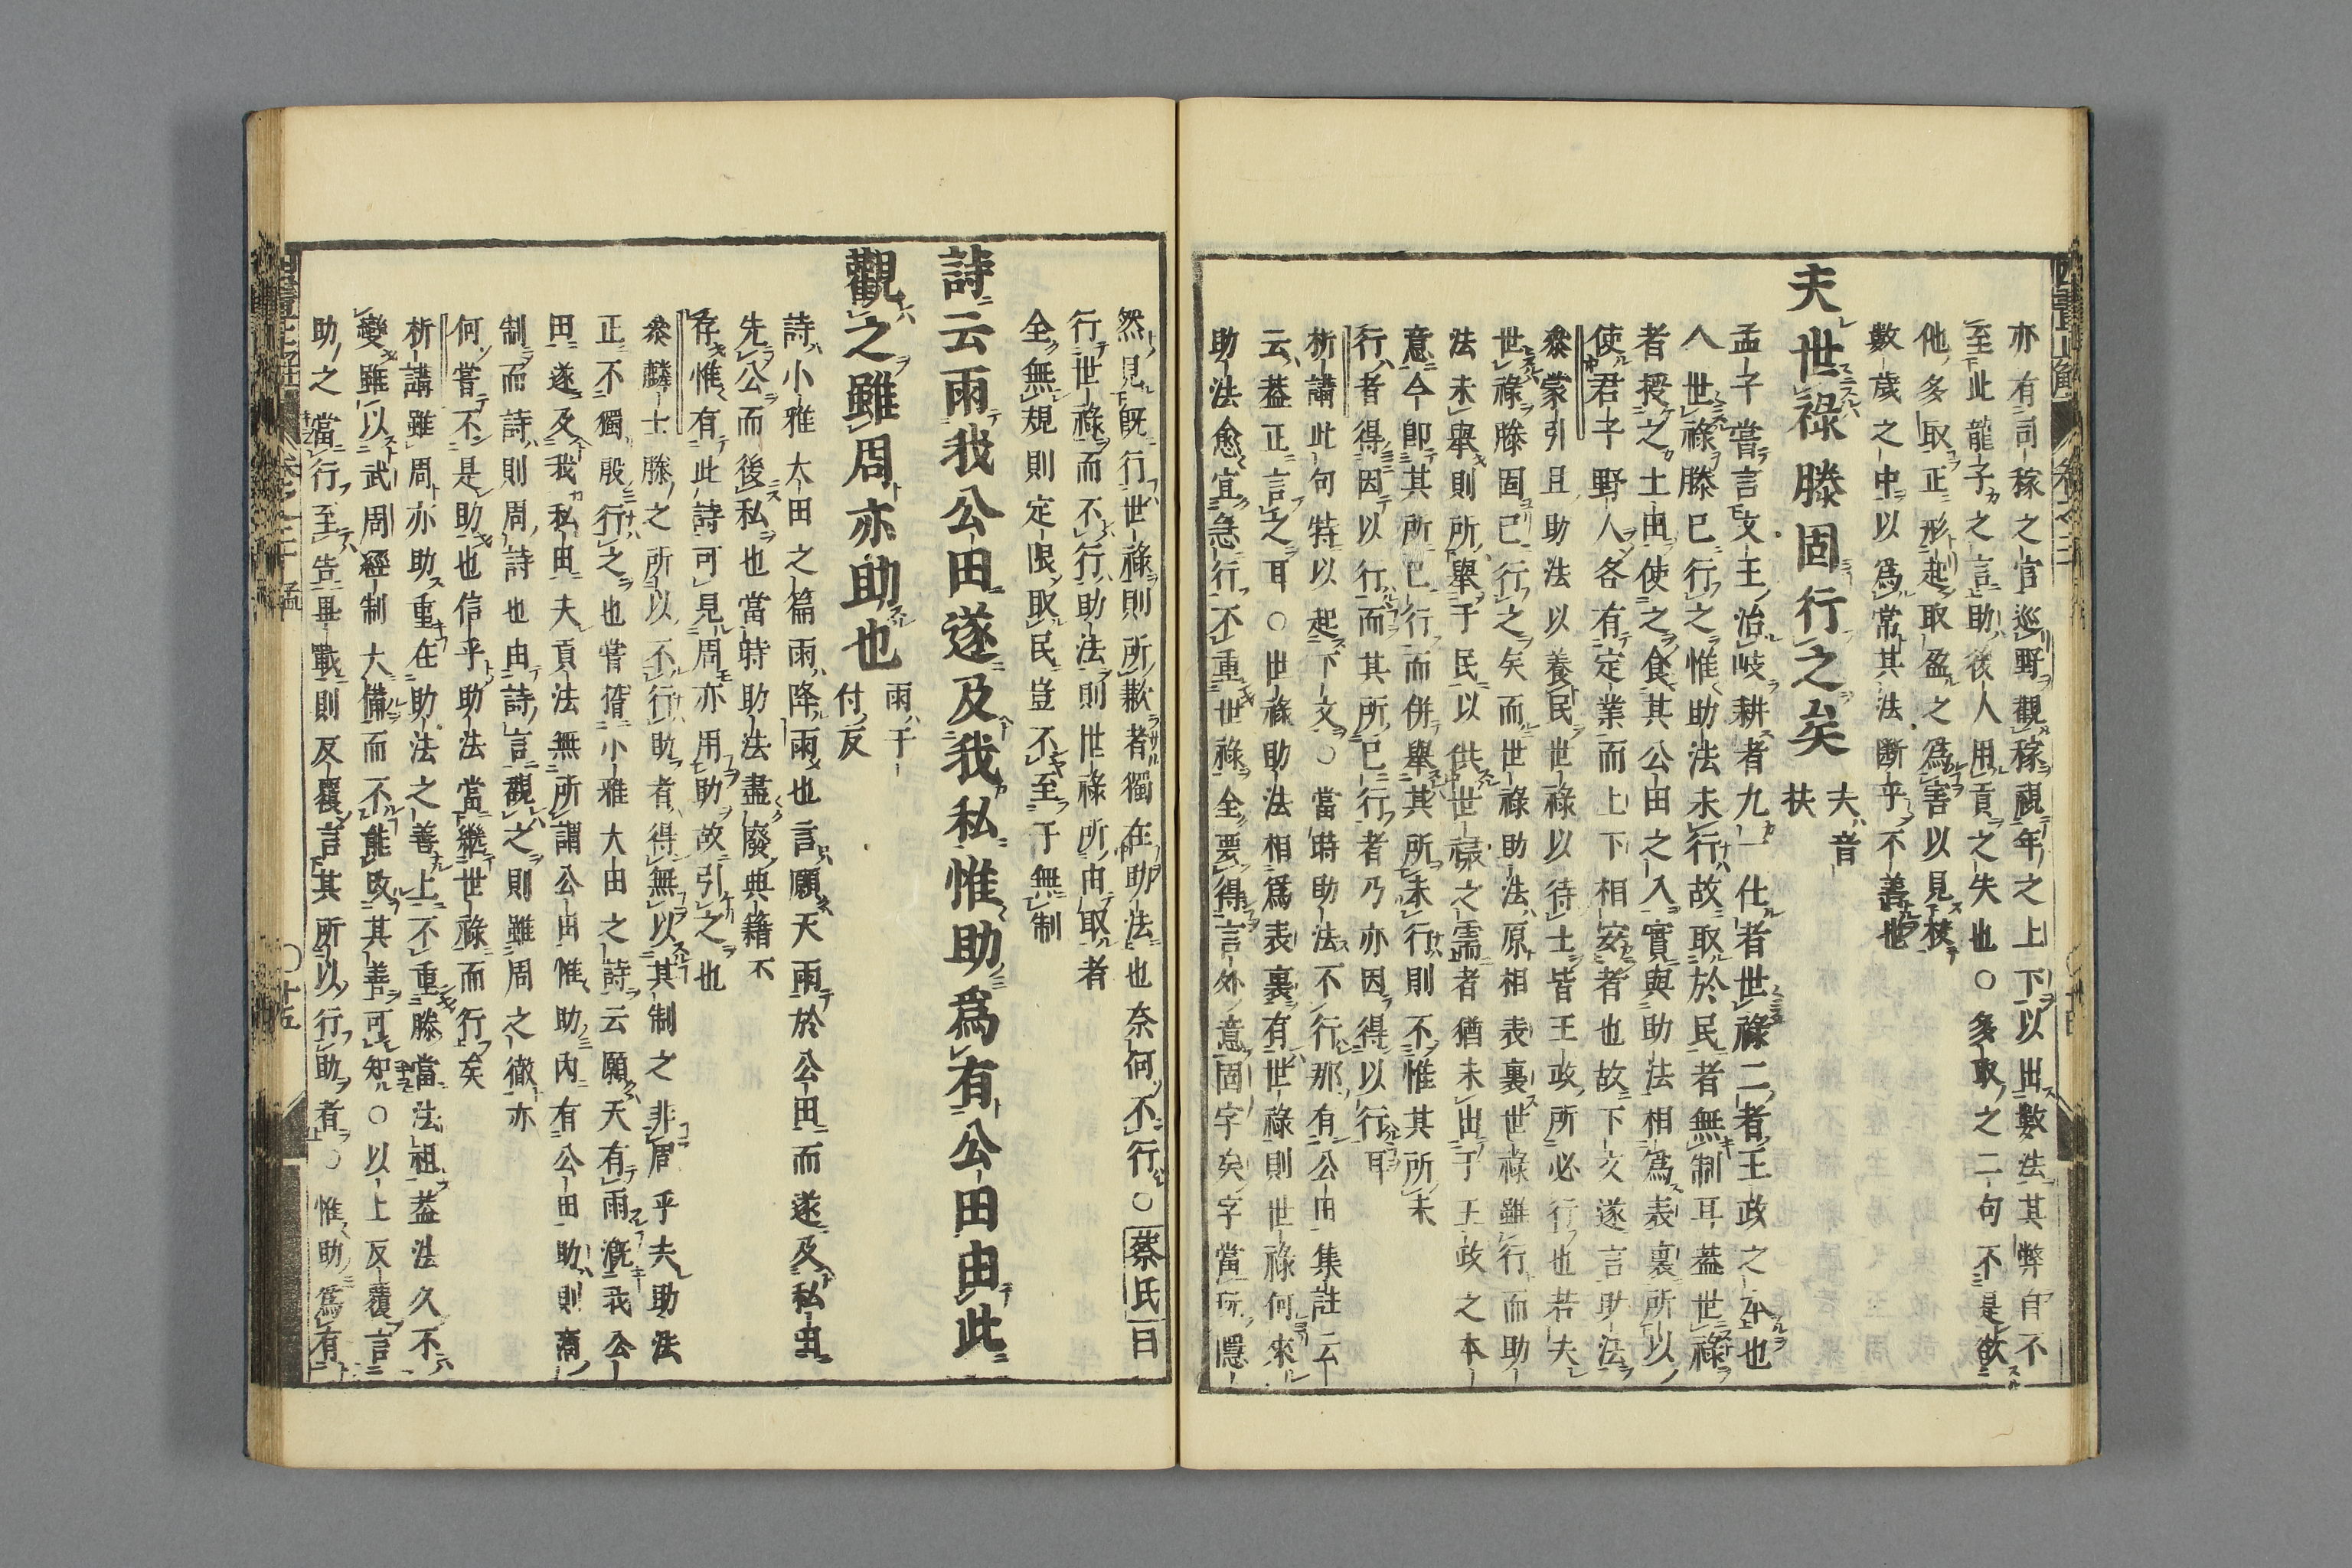 亦有司稼之官巡野觀稼視年之上下以出數法其弊自不
至此龍子之言助後人用貢之失也○多取之二句不是欲
他多取正形起取盈之爲害以見校
數歲之中以爲常其法斷乎不善也
夫世祿滕固行之矣
夫音
扶
孟子嘗言文王治岐耕者九一仕者世祿二者王政之本也
八世祿滕已行之惟助法未行故取於民者無制耳蓋世祿
者授之土田使之食其公田之入實與助法相爲表裏所以
使君子野人各有定業而上下相安者也故下文遂言助法
參蒙引且助法以養民世祿以待士皆王政所必行也若夫
世祿滕固已行之矣而世祿助法原相表裏世祿雖行而助
法未舉則所舉于民以供世祿之需者猶未出于王政之本
意今卽其所已行而併舉其所未行則不惟其所未
行者得因以行而其所已行者乃亦因得以行耳
析講此句特以起下文○當時助法不行那有公田集註云
云蓋正言之耳○世祿助法相爲表裏有世祿則世祿何來
助法愈宜急行不重世祿全要得言外意固字矣字當玩隱
然見旣行世祿則所歉者獨在助法也奈何不行○蔡氏曰
行世祿而不行助法則世祿所由取者
全無規則定限取民豈不至于無制
詩云雨我公田遂及我私惟助爲有公田由此
觀之雖周亦助也
雨于
付反
詩小雅大田之篇雨降雨也言願天雨於公田而遂及私田
先公而後私也當時助法盡廢典籍不
存惟有此詩可見周亦用助故引之也
參麟士滕之所以不行助者得無以其制之非周乎夫助法
正不獨殷行之也嘗稽小雅大田之詩云願天有雨漑我公
田遂及我私田夫貢法無所謂公田惟助內有公田助則商
制而詩則周詩也由詩言觀之則雖周之徹亦
何嘗不是助也信乎助法當繼世祿而行矣
析講雖周亦助重在助法之善上不重滕當法祖蓋法久不
變雖以武周經制大備而不能改其善可知○以上反覆言
助之當行至告畢戰則反覆言其所以行助者○惟助爲有